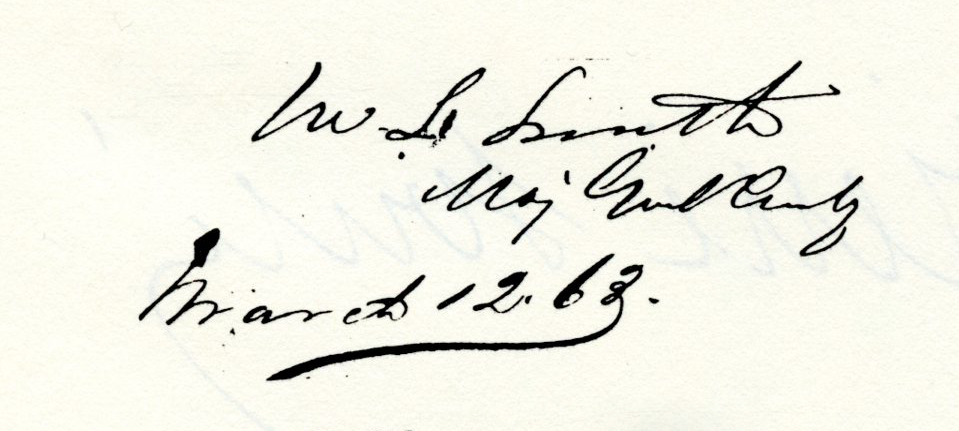 M. L. Smith
Maj Genl Comdg
March 12. 63.